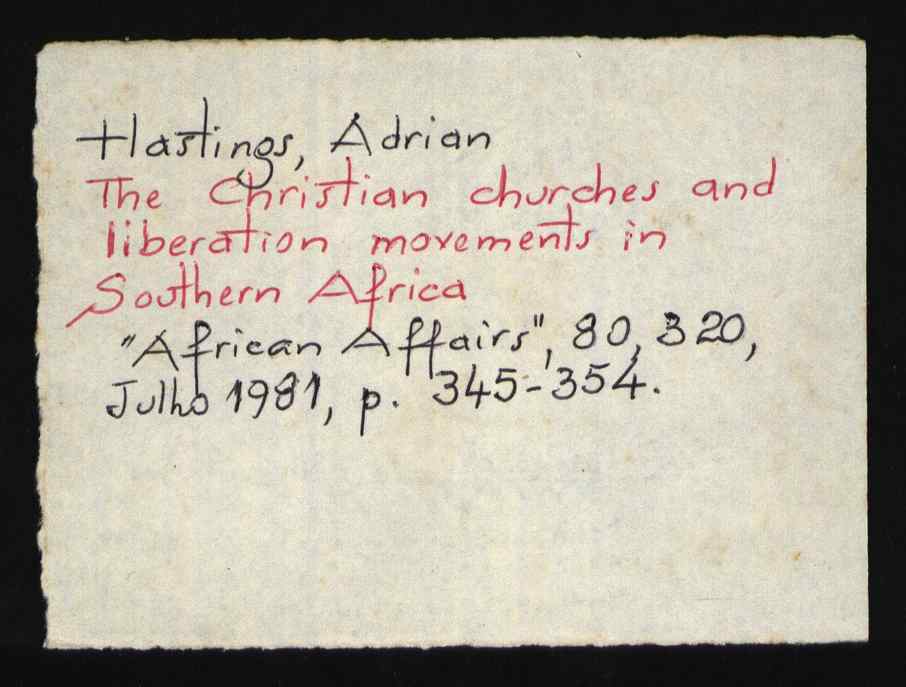 Hastings, Adrian
The Christian churches and
liberation movements in
Southern Africa
"African Affairs", 80, 320,
Julho 1981, p. 345-354.